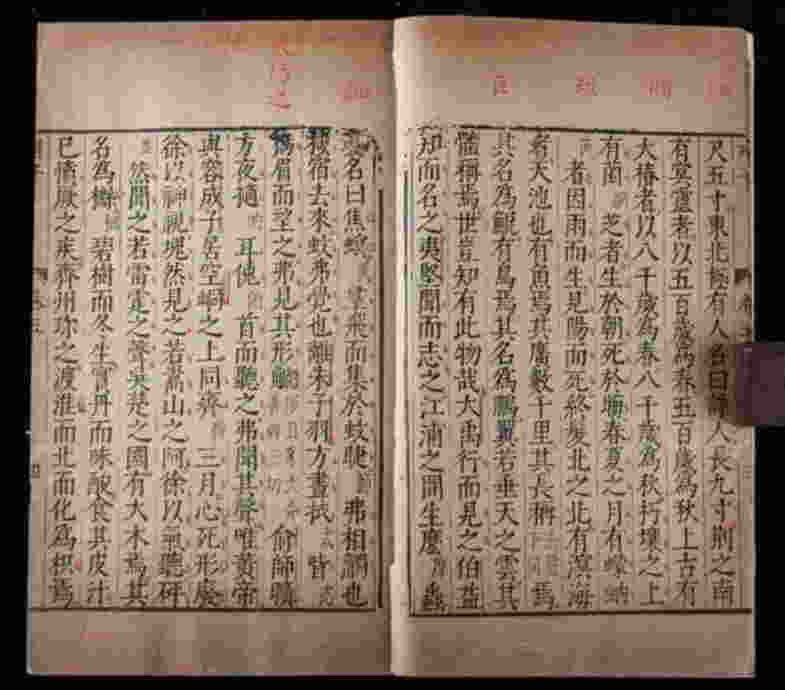 尺五寸東北極有人名曰諍人長九寸荆之南
有冥靈者以五百歲為春五百歲為秋上古有
大椿者以八千歲為春八千歲為秋朽壤之上
有菌芝者生於朝死於晦春夏之月有蠓蚋
者因雨而生見陽而死終髮北之北有溟海
者天池也有魚焉其廣數千里其長稱焉
其名為鯤有鳥焉其名為鵬翼若垂天之雲其
體稱焉世豈知有此物哉大禹行而見之伯益
知而名之夷堅聞而志之江浦之間生麼蟲
其名曰焦螟羣飛而集於蚊睫弗相觸也
栖宿去來蚊弗覺也離朱子羽方晝拭眥
揚眉而望之弗見其形䚦俞師曠
方夜擿耳俛首而聽之弗聞其聲唯黄帝
與容成子居空峒之上同齋三月心死形廢
徐以神視塊然見之若嵩山之阿徐以氣聽砰
然聞之若雷霆之聲吳楚之國有大木焉其
名為櫾碧樹而冬生實丹而味酸食其皮汁
已憤厥之疾齊州珍之渡淮而北而化為枳焉